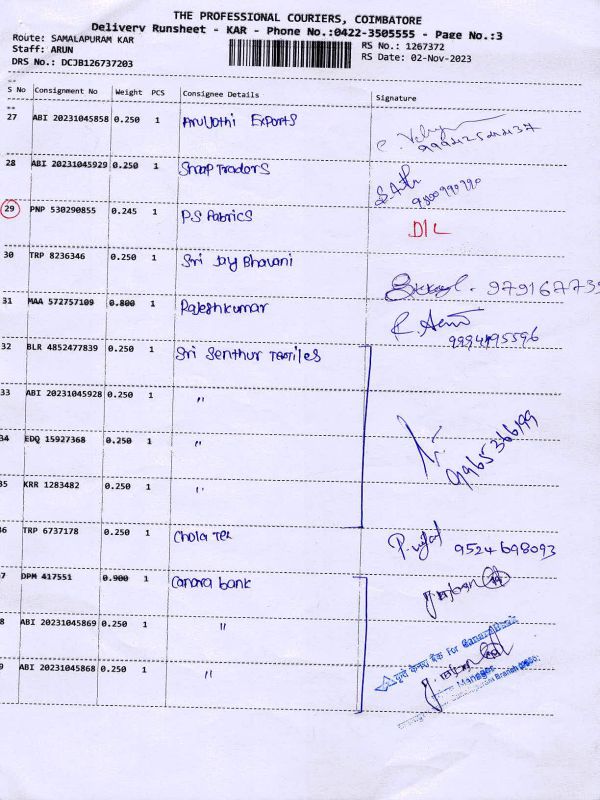 THE PROFESSIONAL COURIERS, COIMBATORE
Delivery Runsheet - KAR - Phone No.:0422-3505555 - Page No.:3
Route: SAMALAPURAM KAR
Staff: ARUN
RS No.: 1267372
DRS No.: DCJB126737203
RS Date: 02-Nov-2023
S No Consignment No Weight PCS Consignee Details Signature
27 ABI 20231045858 0.250 1 Aruljothi Exports
28 ABI 20231045929 0.250 1 Shop Traders
29 PNP 530290855 0.245 1 PS Fabrics D/L
30 TRP 8236346 0.250 1 Sri Jay Bhavani
31 MAA 572757109 0.800 1 Rajeshkumar
32 BLR 4852477839 0.250 1 Sri Senthur
33 ABI 20231045928 0.250 1 "
34 EDQ 15927368 0.250 1 "
35 KRR 1283482 0.250 1 "
9965366199
6 TRP 6737178 0.250 1 Chola Tex 9524698093
7 DPM 417551 0.900 1 Canara bank
8 ABI 20231045869 0.250 1 "
9 ABI 20231045868 0.250 1 "
कृते केनरा बैंक For Canara Bank
Manager
Branch